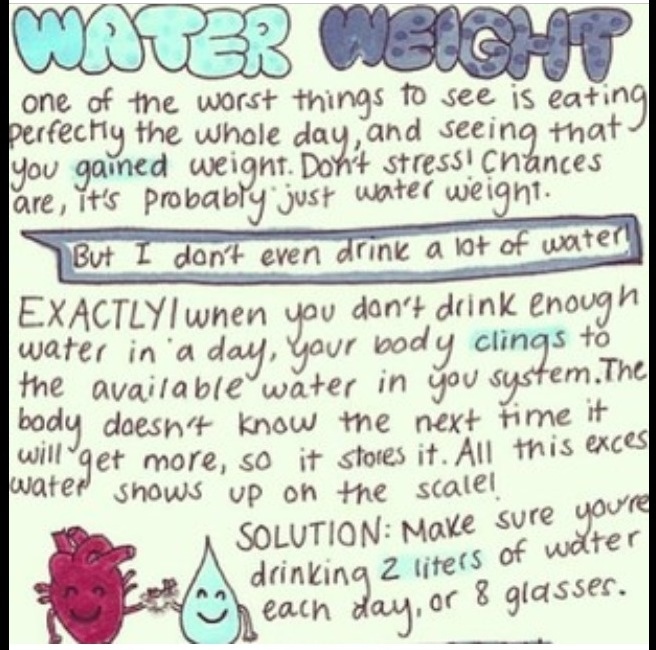 WATER WEIGHT
one of the worst things to see is eating
perfectly the whole day, and seeing that
you gained weight. Don't stress! Chances
are, it's probably just water weight.
But I don't even drink a lot of water!
EXACTLY! when you don't drink enough
water in a day, your body clings to
the available water in you system. The
body doesn't know the next time it
will get more, so it stores it. All this exces
water shows up on the scale!
SOLUTION: Make sure you're
drinking 2 liters of water
each day, or 8 glasses.